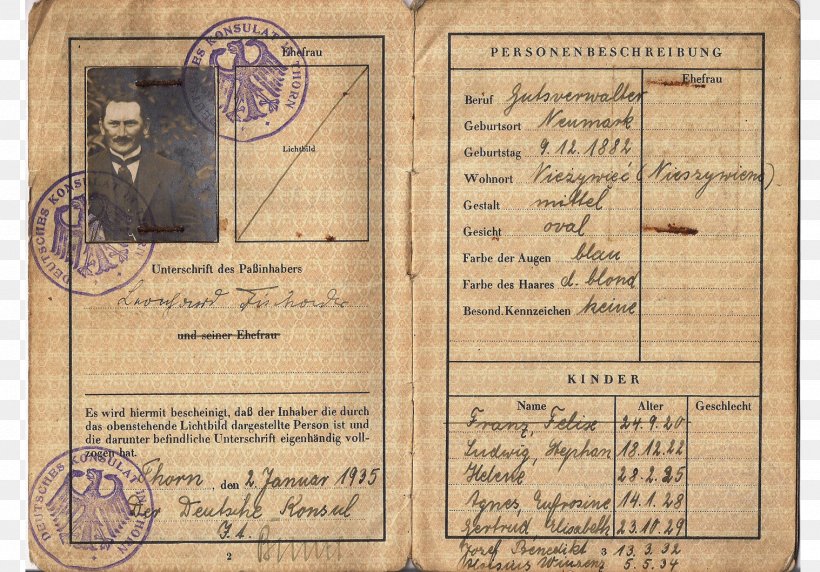 DEUTSCHES KONSULAT IN THORN
Ehefrau
Lichtbild
DEUTSCHES KONSULAT IN THORN
Unterschrift des Paßinhabers
und seiner Ehefrau
Es wird hiermit bescheinigt, daß der Inhaber die durch
das obenstehende Lichtbild dargestellte Person ist und
die darunter befindliche Unterschrift eigenhändig voll-
zogen hat.
Thorn, den 2. Januar 1935
Der Deutsche Konsul
DEUTSCHES KONSULAT IN THORN
2
PERSONENBESCHREIBUNG
Ehefrau
Beruf Gutsverwalter
Geburtsort Neumark
Geburtstag 9.12.1882
Wohnort
Gestalt mittel
Gesicht oval
Farbe der Augen blau
Farbe des Haares d. blond
Besond. Kennzeichen keine
KINDER
Name Alter Geschlecht
Franz, Felix 24.9.20
Ludwig, Stephan 18.12.22
Helene 28.2.25
Agnes, Eufrosine 14.1.28
Gertrud Elisabeth 23.10.29
Josef Benedikt 13.3.32
3
5.5.34